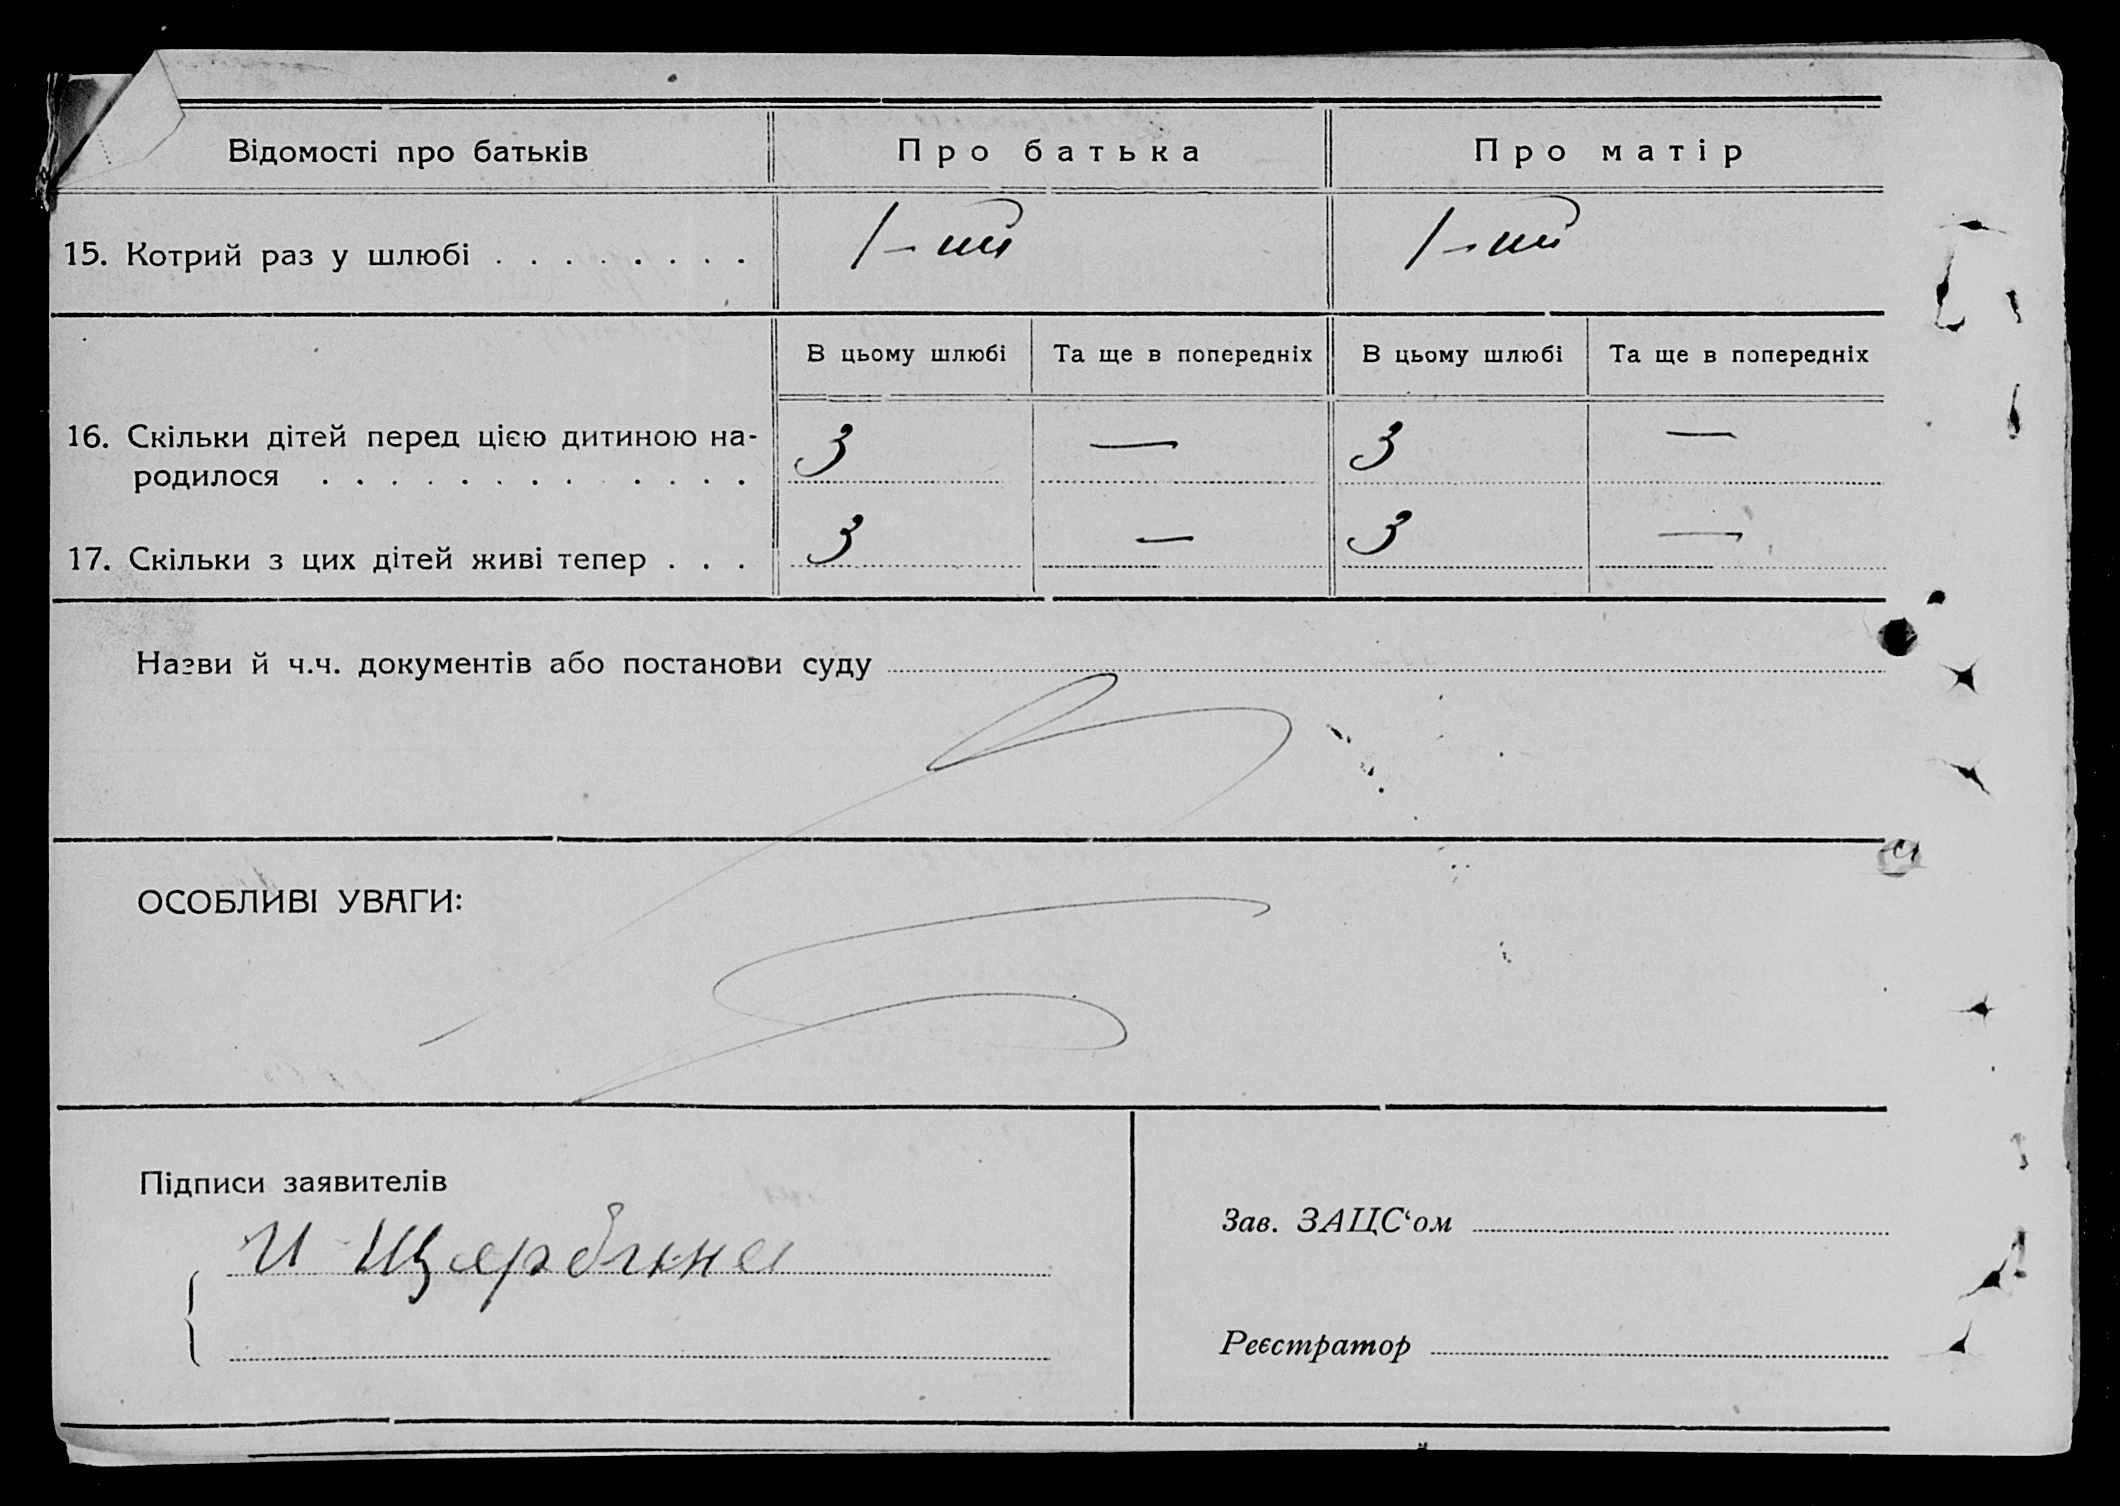 Відомості про батьків Про батька Про матір
15. Котрий раз у шлюбі . . . . . . . . 1-ий 1-ий
В цьому шлюбі Та ще в попередніх В цьому шлюбі Та ще в попередніх
16. Скільки дітей перед цією дитиною на-
родилося . . . . . . . . . . . . . 3 — 3 —
17. Скільки з цих дітей живі тепер . . . 3 — 3 —
Назви й ч.ч. документів або постанови суду
ОСОБЛИВІ УВАГИ:
Підписи заявителів
И Щербина
Зав. ЗАЦС‘ом
Реєстратор